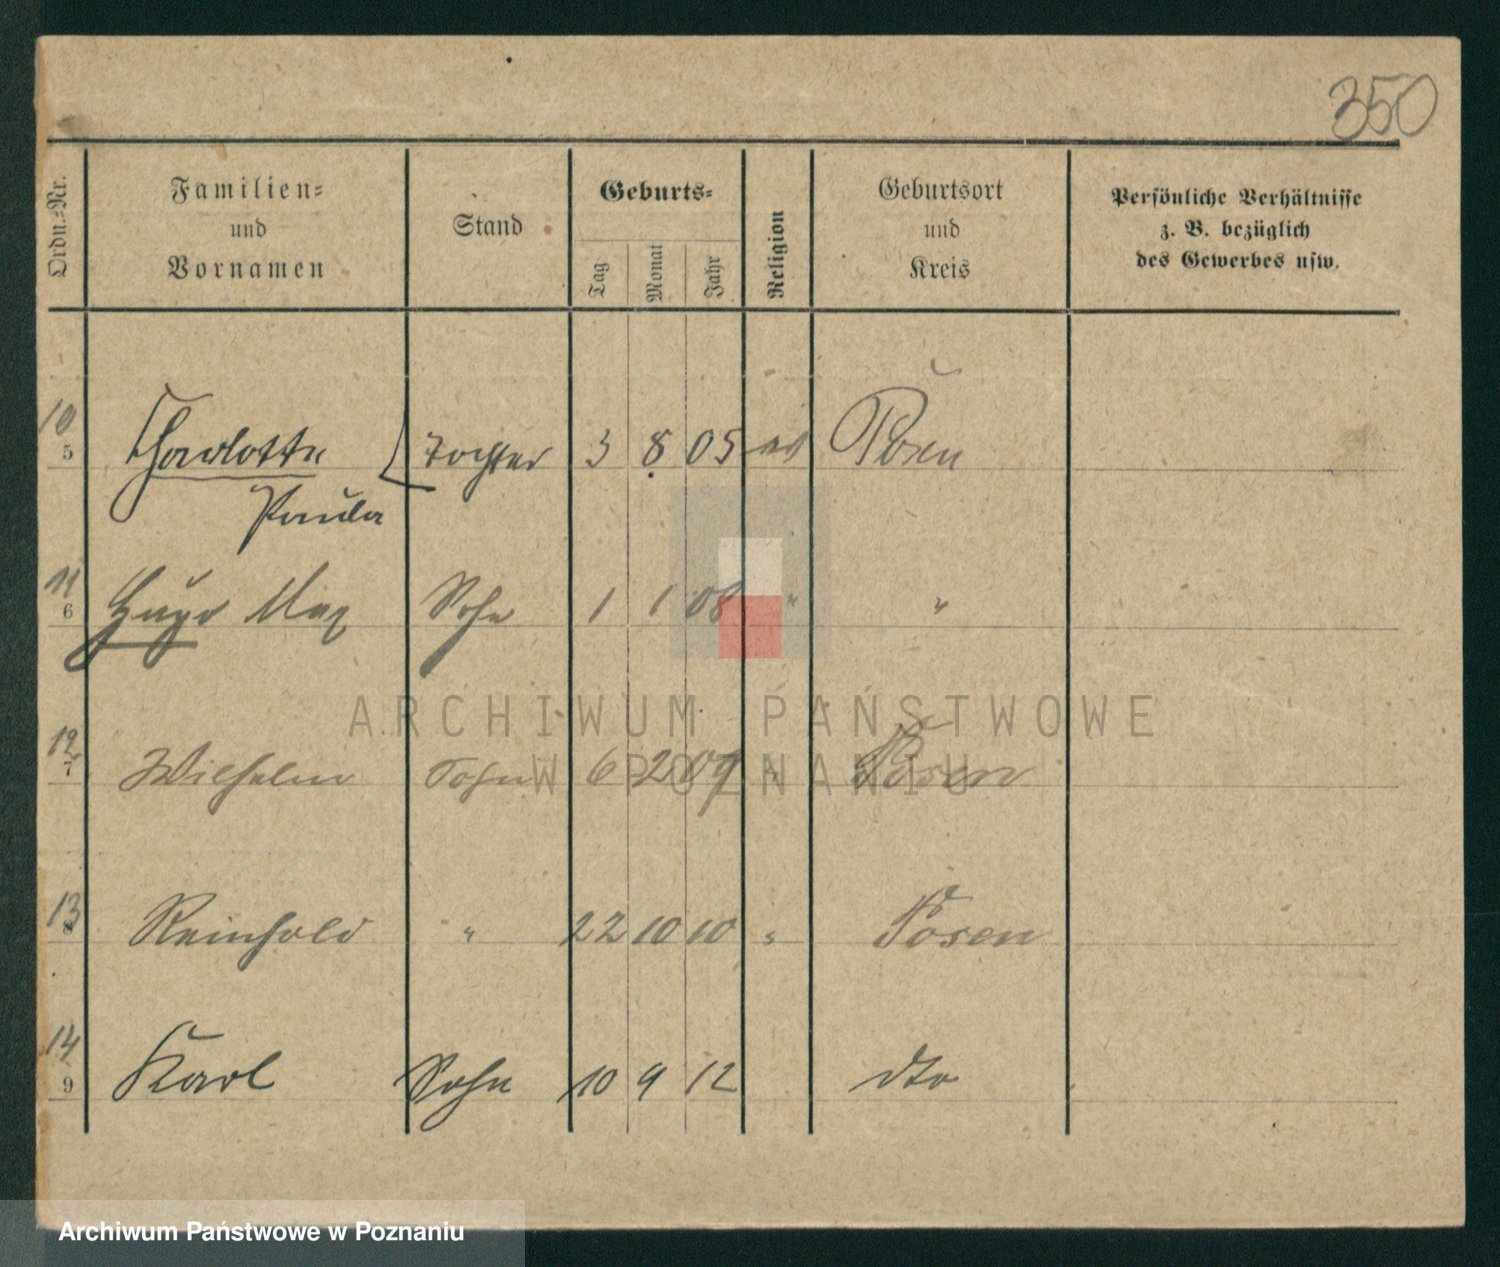 350
Ordn.-Nr.
Familien-
und
Vornamen
Stand
Geburts-
Tag
Monat
Jahr
Religion
Geburtsort
und
Kreis
Persönliche Verhältnisse
z. B. bezüglich
des Gewerbes usw.
10
5 Charlotte Tochter 3 8 05 ev Posen
Paula
11
6 Hugo Max Sohn 1 1 08 " "
ARCHIWUM PAŃSTWOWE
W POZNANIU
12
7 Wilhelm Sohn 6 2 09 " Posen
13
8 Reinhold " 22 10 10 " Posen
14
9 Karl Sohn 10 9 12 dto
Archiwum Państwowe w Poznaniu